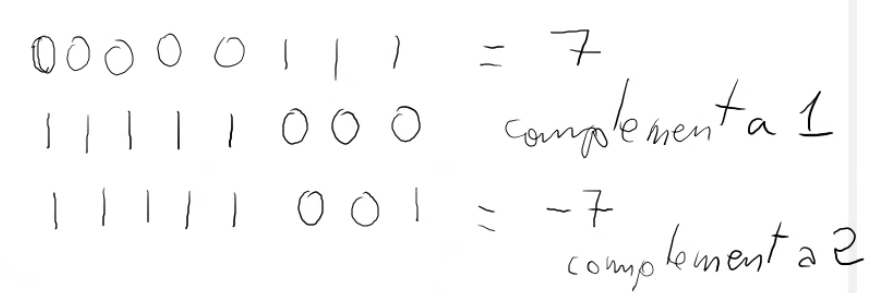 00000111 = 7
11111000 complement a 1
11111001 = -7
complement a 2